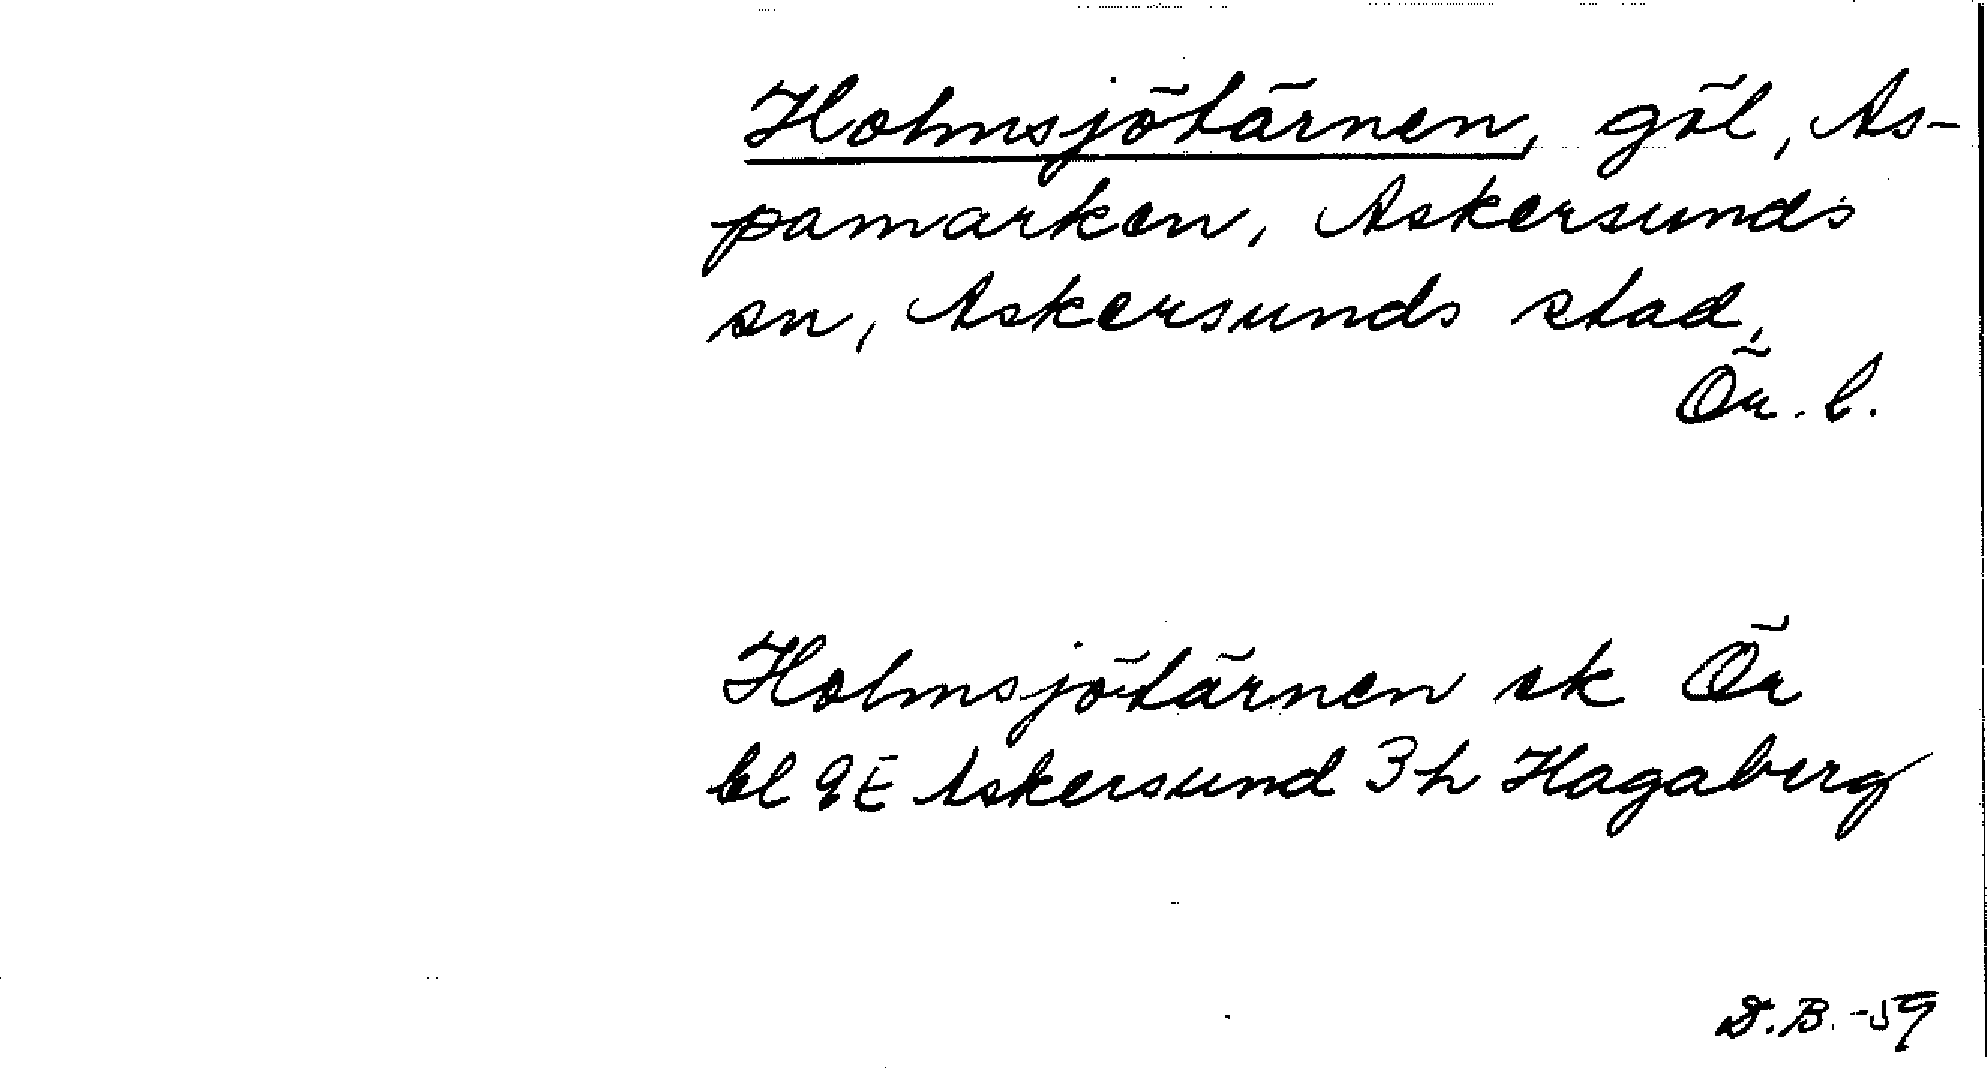 Holmsjötärnen, göl, As-
pamarken, Askersunds
sn, Askersunds stad,
Ör. l.
Holmsjötärnen ek Ör
bl 9E Askersund 3h Hagaberg
D.B. -59